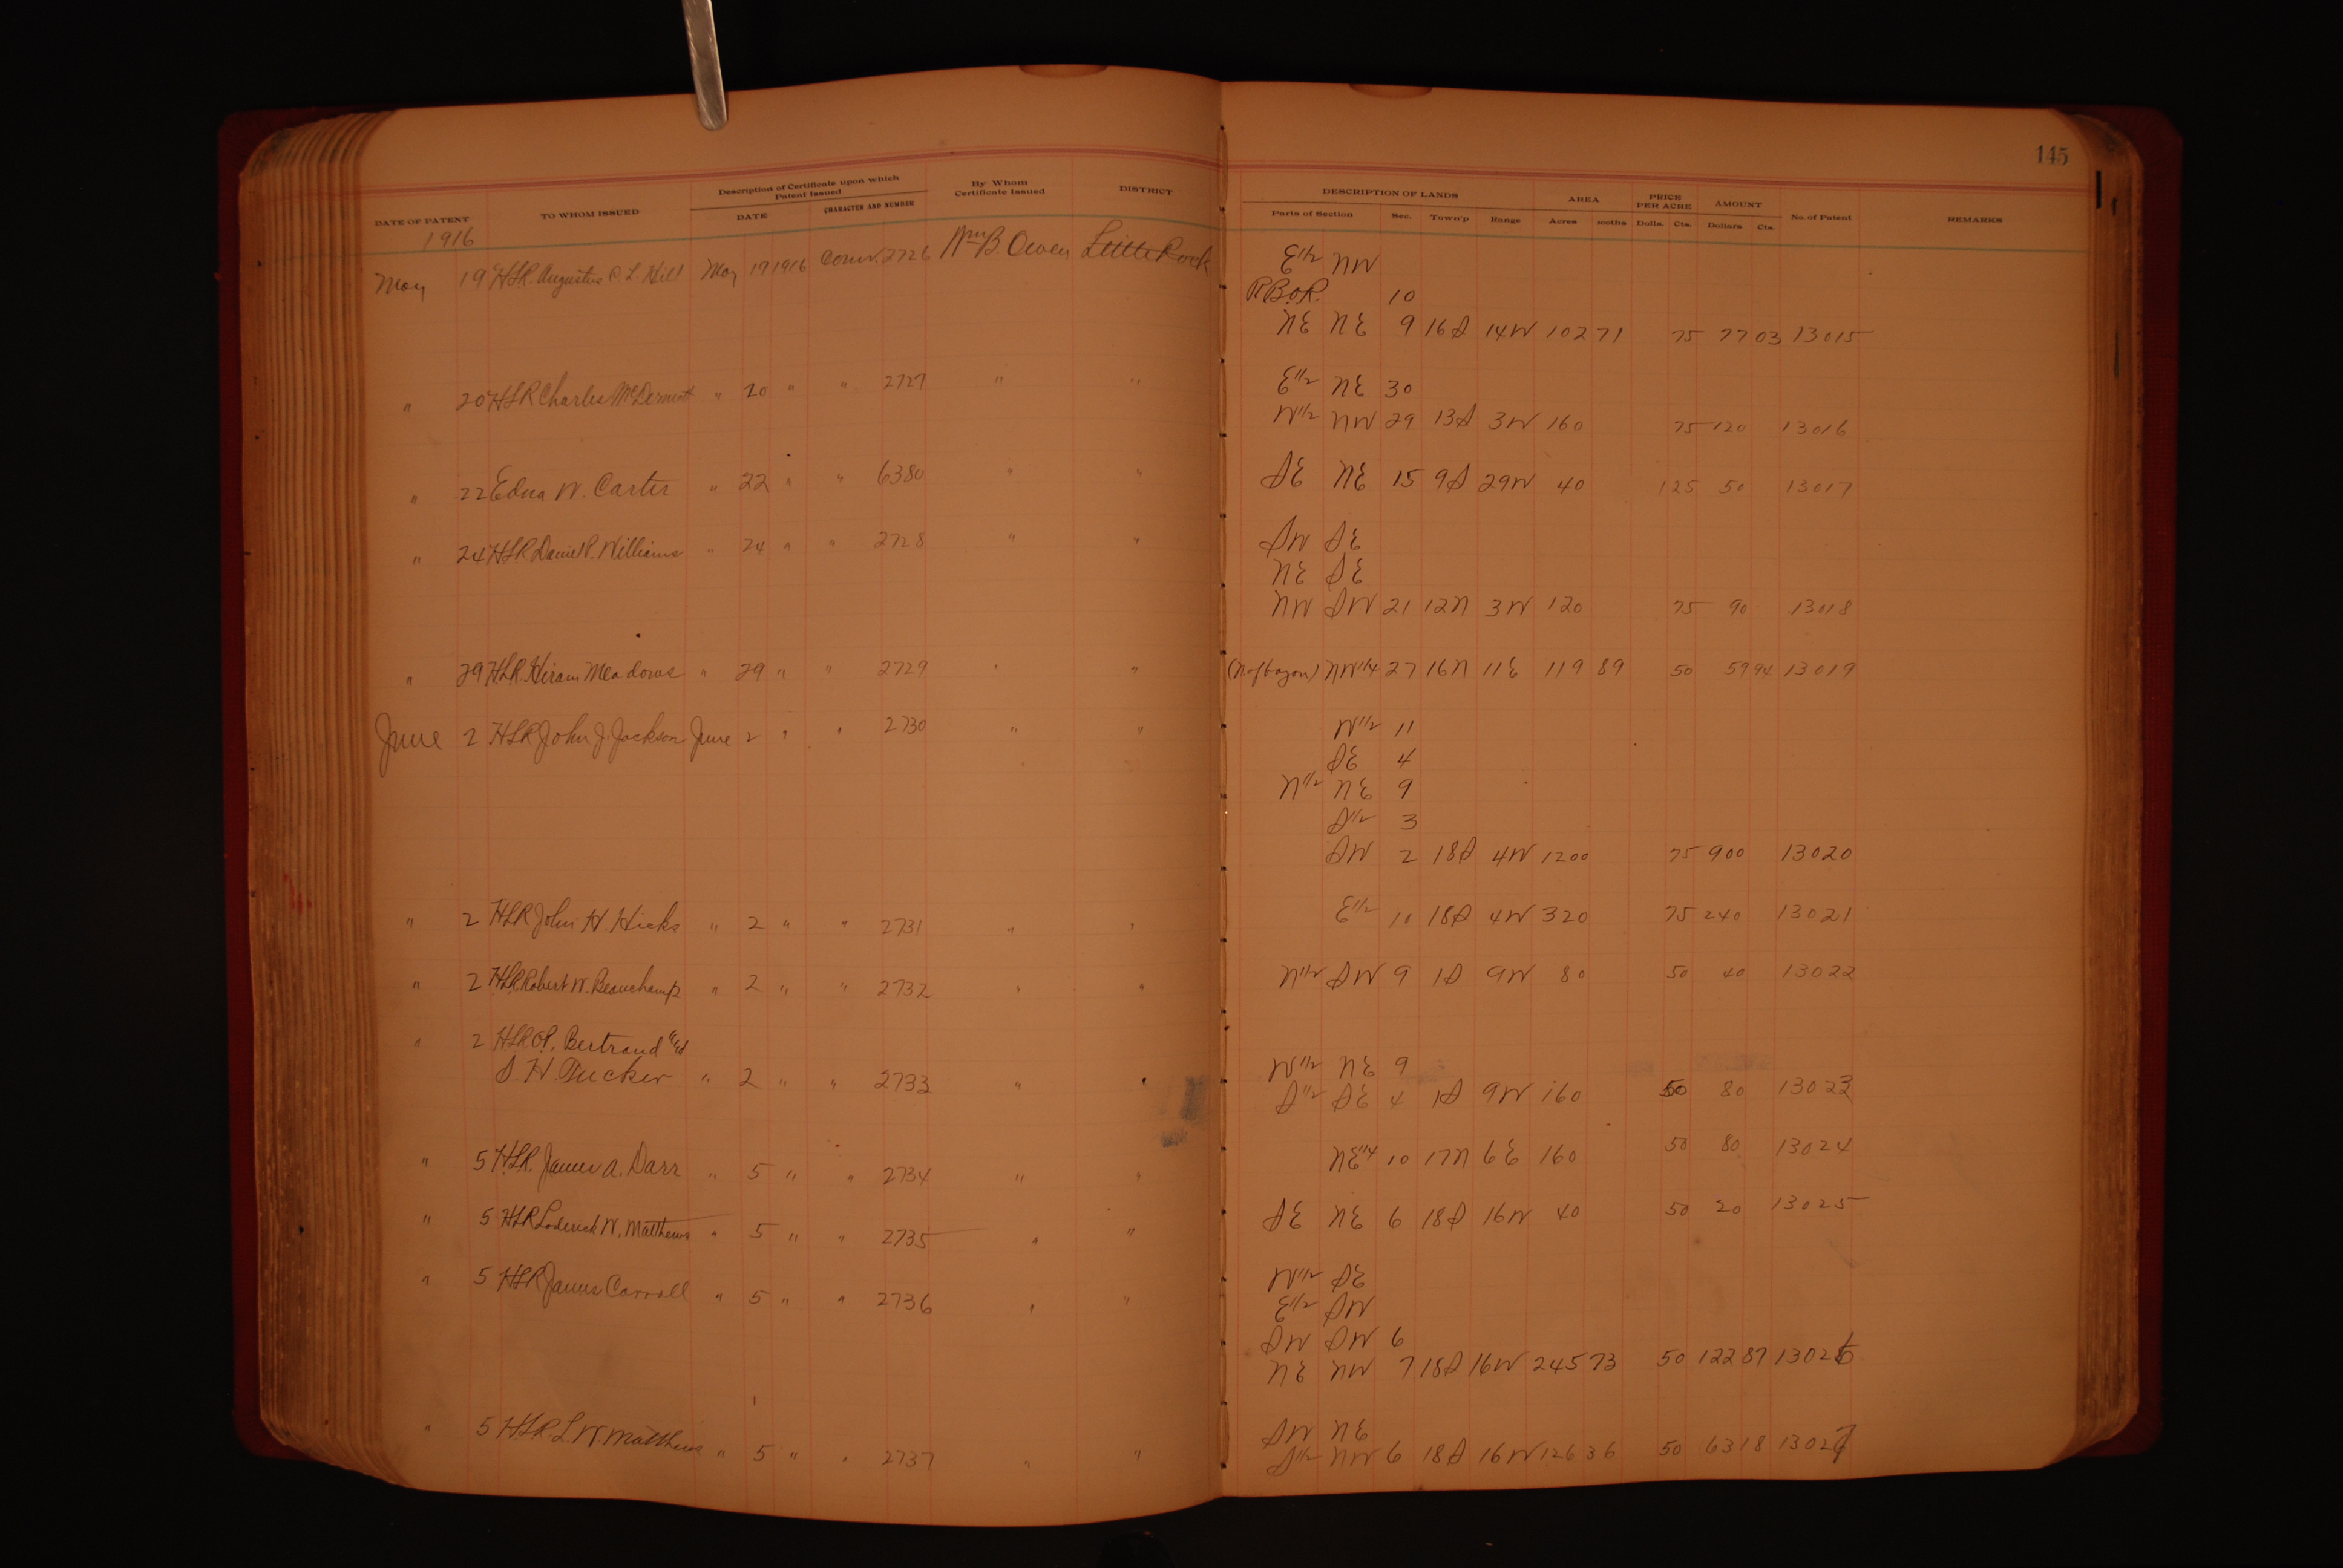 145
DATE OF PATENT TO WHOM ISSUED Description of Certificate upon which Patent Issued DATE CHARACTER AND NUMBER By Whom Certificate Issued DISTRICT DESCRIPTION OF LANDS Parts of Section Sec. Town'p Range AREA Acres 100ths PRICE PER ACRE Dolls. Cts. AMOUNT Dollars Cts. No. of Patent REMARKS
1916
May 19 HLR. Augustus C. L. Hill May 19 1916 Conv. 2726 Wm B. Owen Little Rock E1/2 NW
R.B.O.R. 10
NE NE 9 16S 14W 102 71 75 77 03 13015
" 20 HLR Charles McDermott " 20 " " 2727 " " E1/2 NE 30
W1/2 NW 29 13S 3W 160 75 120 13016
" 22 Edna W. Carter " 22 " " 6380 " " SE NE 15 9S 29W 40 1 25 50 13017
" 24 HLR Daniel P. Williams " 24 " " 2728 " " SW SE
NE SE
NW SW 21 12N 3W 120 75 90 13018
" 29 HLR. Hiram Meadows " 29 " " 2729 " " (N of bayou) NW1/4 27 16N 11E 119 89 50 59 94 13019
June 2 HLR John J. Jackson June 2 " " 2730 " " W1/2 11
SE 4
N1/2 NE 9
S1/2 3
SW 2 18S 4W 1200 75 900 13020
" 2 HLR John H. Hicks " 2 " " 2731 " " E1/2 10 18S 4W 320 75 240 13021
" 2 HLR. Robert W. Beauchamp " 2 " " 2732 " " N1/2 SW 9 1S 9W 80 50 40 13022
" 2 HLR C.P. Bertrand and
S. H. Tucker " 2 " " 2733 " " W1/2 NE 9
S1/2 SE 4 1S 9W 160 50 80 13023
" 5 HLR. James A. Darr " 5 " " 2734 " " NE1/4 10 17N 6E 160 50 80 13024
" 5 HLR Loderick W. Matthews " 5 " " 2735 " " SE NE 6 18S 16W 40 50 20 13025
" 5 HLR James Carroll " 5 " " 2736 " " W1/2 SE
E1/2 SW
SW SW 6
NE NW 7 18S 16W 245 73 50 122 87 13026
" 5 HLR. L W Matthews " 5 " " 2737 " " SW NE
S1/2 NW 6 18S 16W 126 36 50 63 18 13027